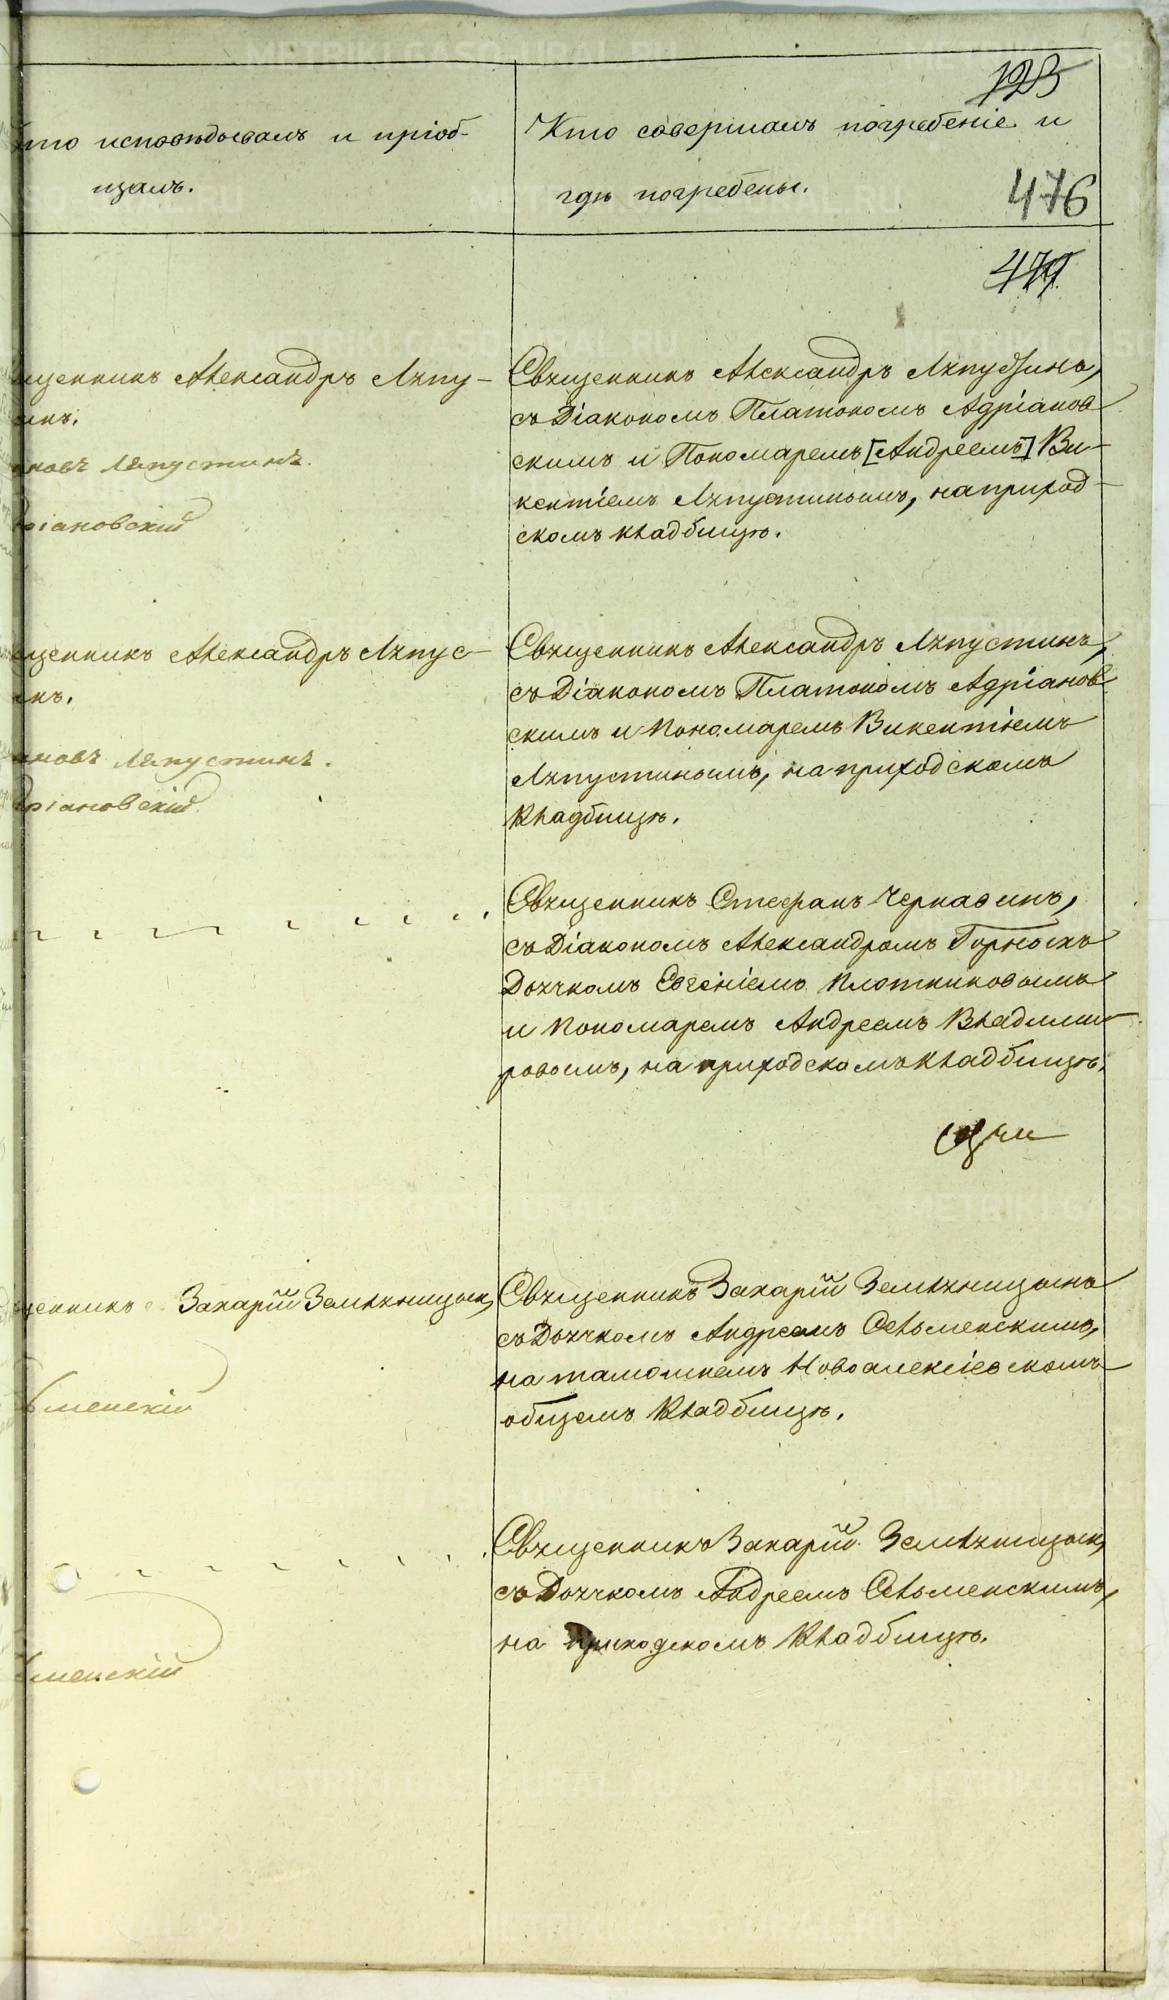 123
Кто исповѣдовалъ и пріоб-
щалъ.
Кто совершалъ погребеніе и
гдѣ погребены.
476
471
щенникъ Александръ Ляпу-
инъ.
новъ Ляпустинъ.
ріановскій
Священникъ Александръ Ляпустинъ,
съ Діакономъ Платономъ Адріанов
скимъ и Пономаремъ [Андреемъ] Ви-
кентіемъ Ляпустинымъ, на приход-
скомъ кладбищѣ.
щенникъ Александръ Ляпус-
инъ.
новъ Ляпустинъ.
ріановскій
Священникъ Александръ Ляпустинъ,
съ Діакономъ Платономъ Адріанов
скимъ и Пономаремъ Викентіемъ
Ляпустинымъ, на приходскомъ
кладбищѣ.
Священникъ Стефанъ Чернавинъ,
съ Діакономъ Александромъ Горныхъ
Дьячкомъ Евгеніемъ Плотниковымъ
и Пономаремъ Андреемъ Владими-
ровымъ, на приходскомъ кладбищѣ.
щенникъ Захарій Земляницынъ,
ьменскій
Священникъ Захарій Земляницынъ
съ Дьячкомъ Андреемъ Сельменскимъ,
на тамошнемъ Новоалексіевскомъ
общемъ кладбищѣ.
Священникъ Захарій Земляницынъ,
съ Дьячкомъ Андреемъ Сельменскимъ,
на приходскомъ кладбищѣ.
менскій
METRIKI.GASO-URAL.RU